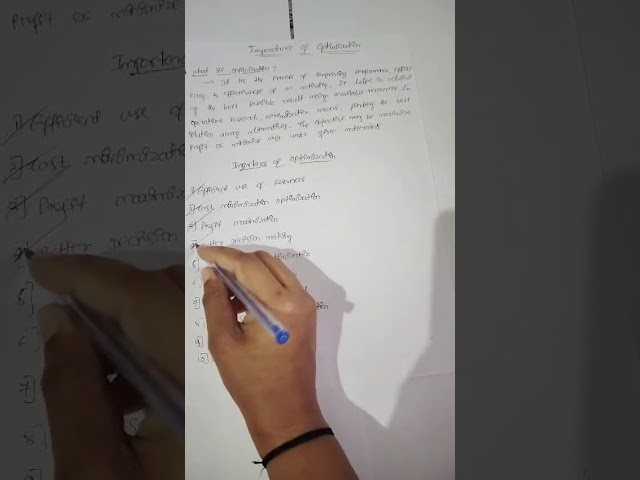 Importance of Optimization
what is optimization?
→ It is the Process of improving Performance, effici
ency & effectiveness of an activity. It helps in achievi
ng the best possible result using available resources. In
operations research, optimization means finding the best
solution among alternatives. The objective may be maximize
Profit or minimize cost under given constraints
Importance of optimization
1] Efficient use of resources
2] cost minimization optimization
3] Profit maximization
4] Better decision making
5]
6]
7]
8]
9]
10]